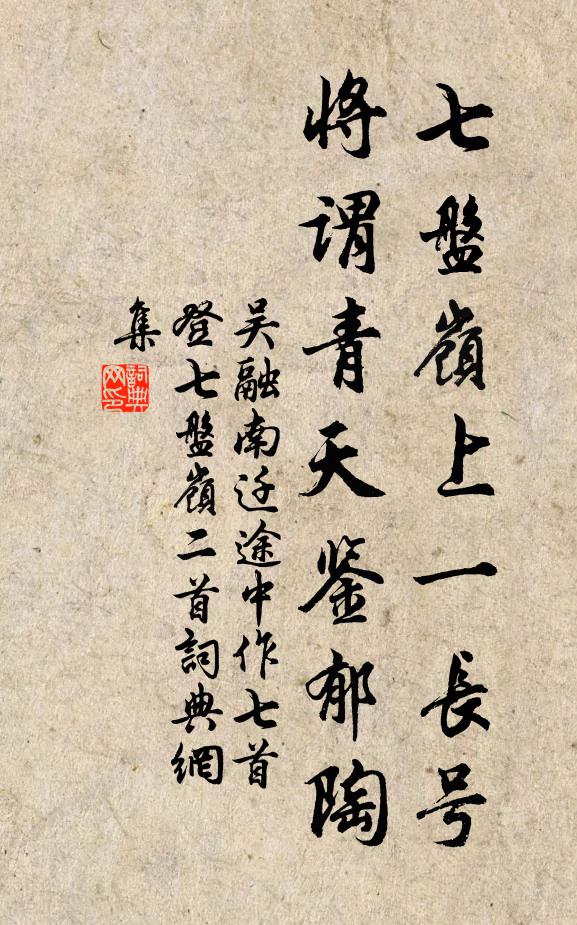 七盤嶺上一長号
将謂青天鉴郁陶
吴融南迁途中作七首
登七盤嶺二首詞典網
集
詞典
网印